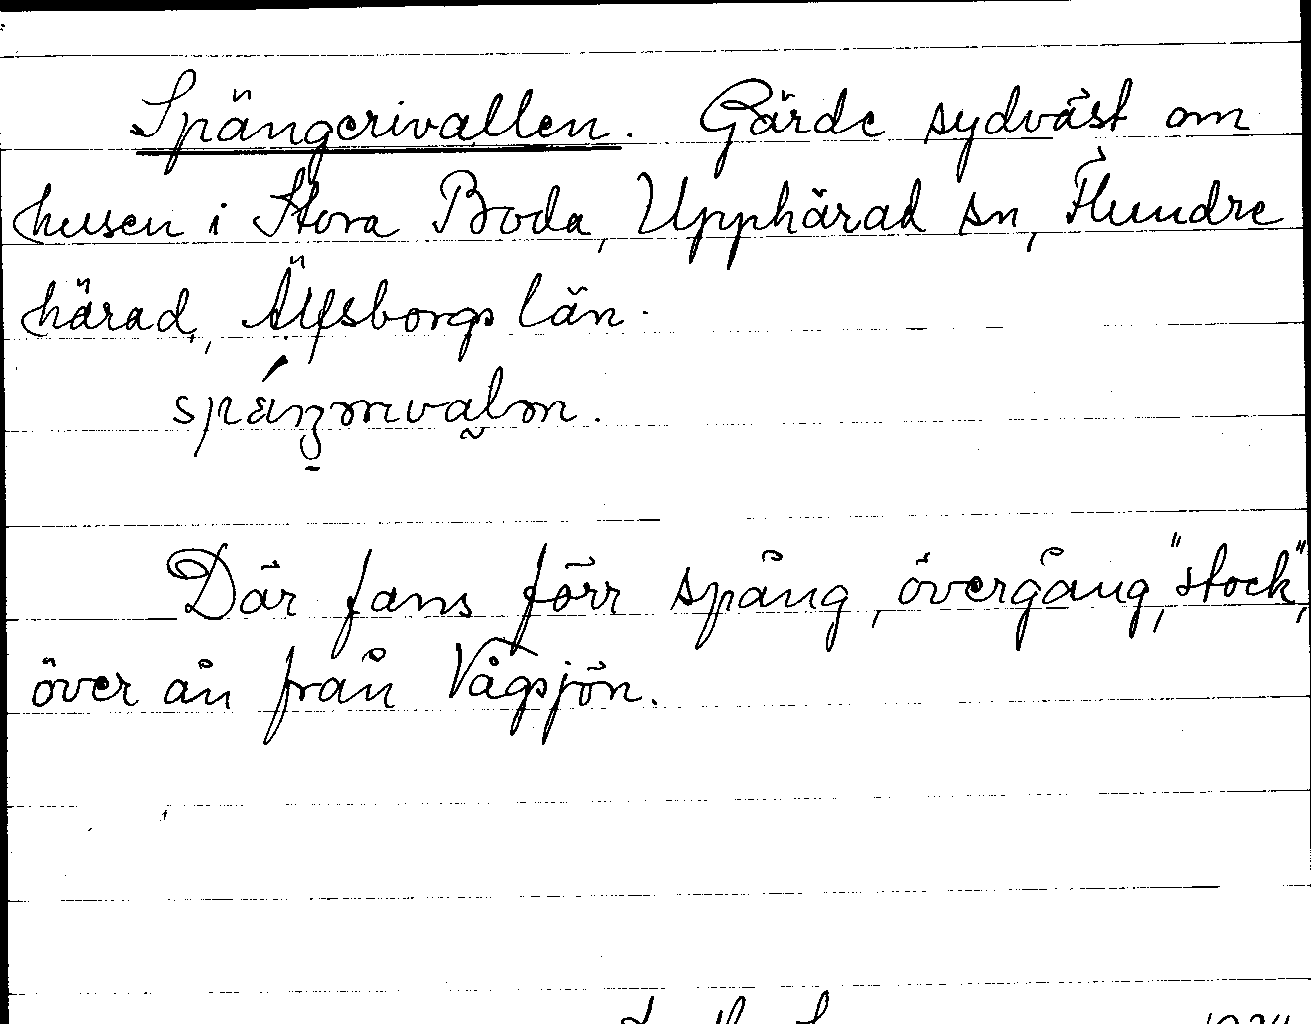 Spängerivallen. Gärde sydväst om
husen i Stora Boda, Upphärad sn, Flundre
härad, Älfsborgs län.
Där fans förr spång, övergång, "stock",
över ån från Vågsjön.